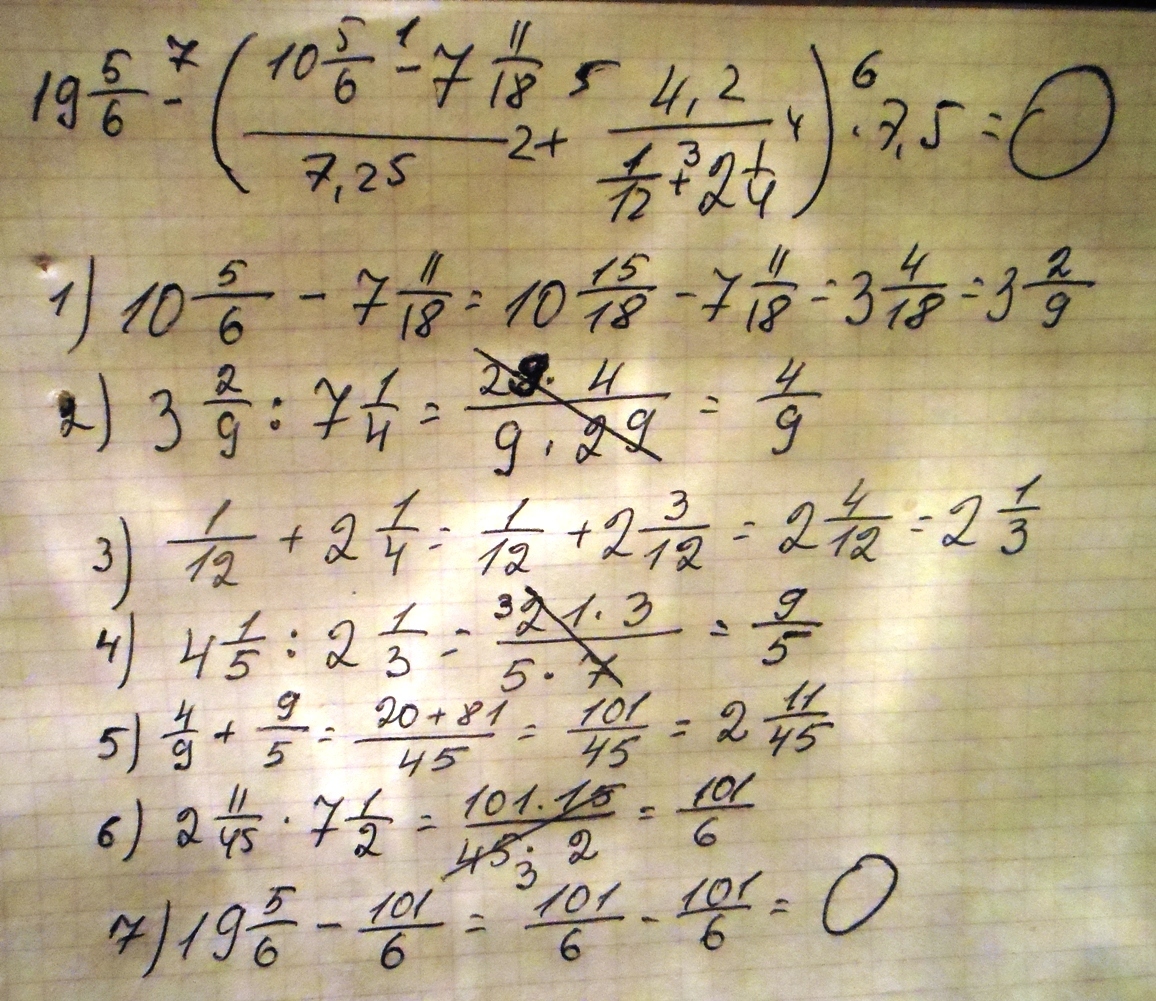 19 5/6 - ⁷ ( (10 5/6 - ¹ 7 11/18) / 7,25 ² + ⁵ 4,2 / (1/12 + ³ 2 1/4) ⁴ ) · ⁶ 7,5 = 0
1) 10 5/6 - 7 11/18 = 10 15/18 - 7 11/18 = 3 4/18 = 3 2/9
2) 3 2/9 : 7 1/4 = 29 · 4 / 9 · 29 = 4/9
3) 1/12 + 2 1/4 = 1/12 + 2 3/12 = 2 4/12 = 2 1/3
4) 4 1/5 : 2 1/3 = ³21 · 3 / 5 · 7 = 9/5
5) 4/9 + 9/5 = 20+81 / 45 = 101/45 = 2 11/45
6) 2 11/45 · 7 1/2 = 101 · 15 / 45₃ · 2 = 101/6
7) 19 5/6 - 101/6 = 101/6 - 101/6 = 0